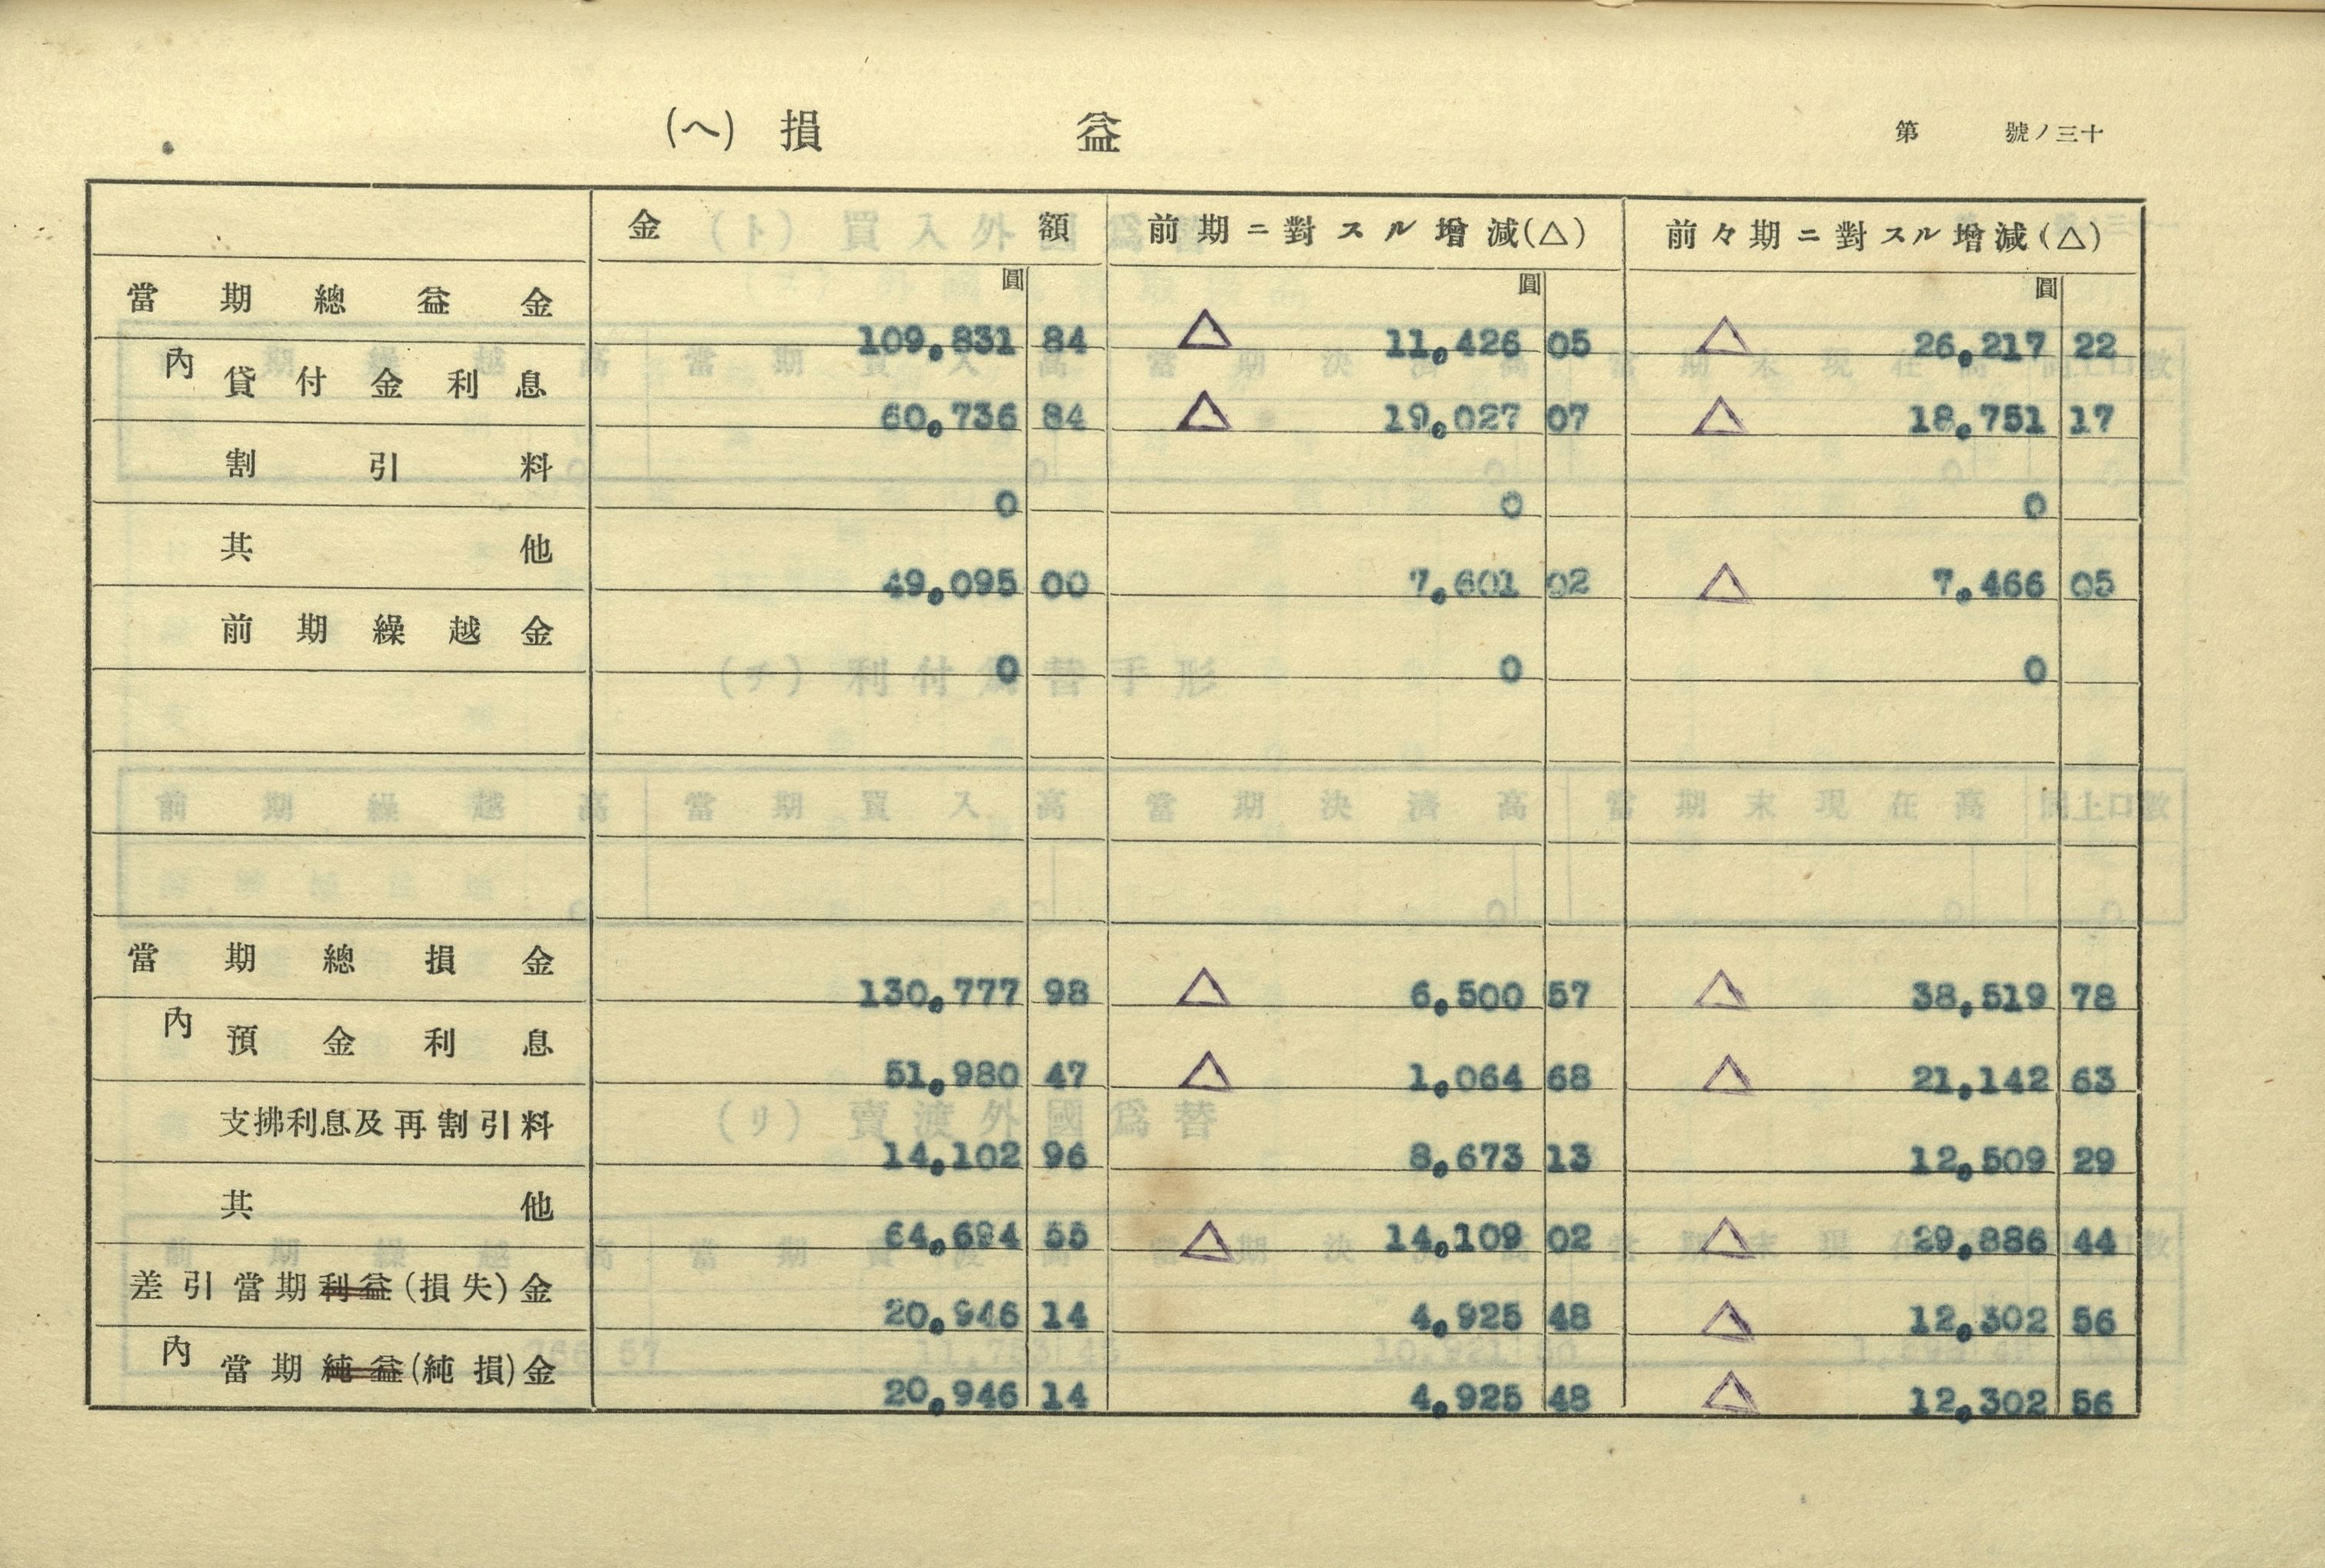 (ヘ) 損益
第 號ノ三十
金額 前期ニ對スル增減(△) 前々期ニ對スル增減(△)
圓 圓 圓
當期總益金 109,831 84 △ 11,426 05 △ 26,217 22
內 貸付金利息 60,736 84 △ 19,027 07 △ 18,751 17
割引料 0 0 0
其他 49,095 00 7,601 02 △ 7,466 05
前期繰越金 0 0 0
當期總損金 130,777 98 △ 6,500 57 △ 38,519 78
內 預金利息 51,980 47 △ 1,064 68 △ 21,142 63
支拂利息及再割引料 14,102 96 8,673 13 12,509 29
其他 64,694 55 △ 14,109 02 △ 29,886 44
差引當期利益(損失)金 20,946 14 4,925 48 △ 12,302 56
內 當期純益(純損)金 20,946 14 4,925 48 △ 12,302 56